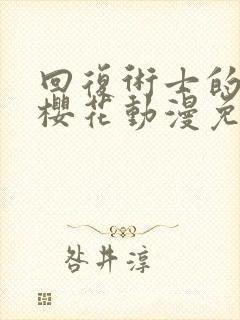 回復術士的
櫻花動漫免
咎井淳